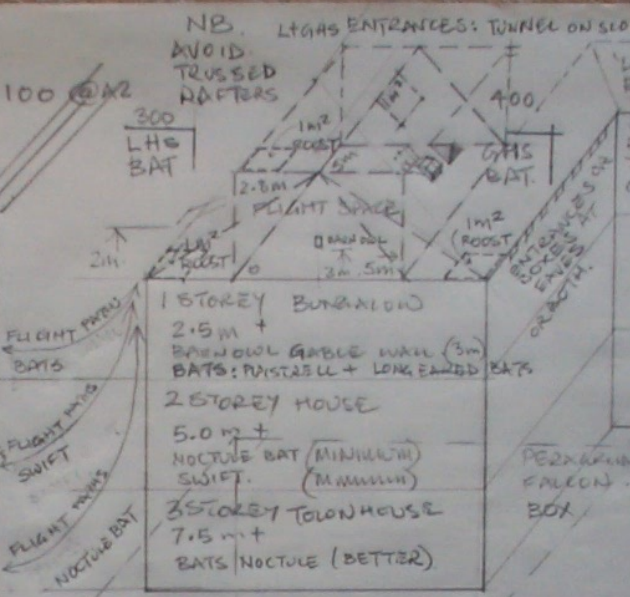 NB.
AVOID
TRUSSED
RAFTERS
L+GHS ENTRANCES: TUNNEL ON SLO
100 @ A2
300
LHS
BAT
1m²
ROOST
400
GHS
BAT.
5m
2.8m
FLIGHT SPACE
1m²
ROOST
1m²
ROOST
2m
BARN OWL
3m
.5m
ENTRANCES OR
BOXES AT
EAVES
OR BOTH.
1 STOREY BUNGALOW
2.5m +
BARN OWL GABLE WALL (3m)
BATS: PIPISTRELL + LONG EARED BATS
2 STOREY HOUSE
5.0m +
NOCTULE BAT (MINIMUM)
SWIFT. (MINIMUM)
3 STOREY TOWNHOUSE
7.5m +
BATS NOCTULE (BETTER)
FLIGHT PATHS
BATS
FLIGHT PATHS
SWIFT
FLIGHT PATHS
NOCTULE BAT
FALCON
BOX